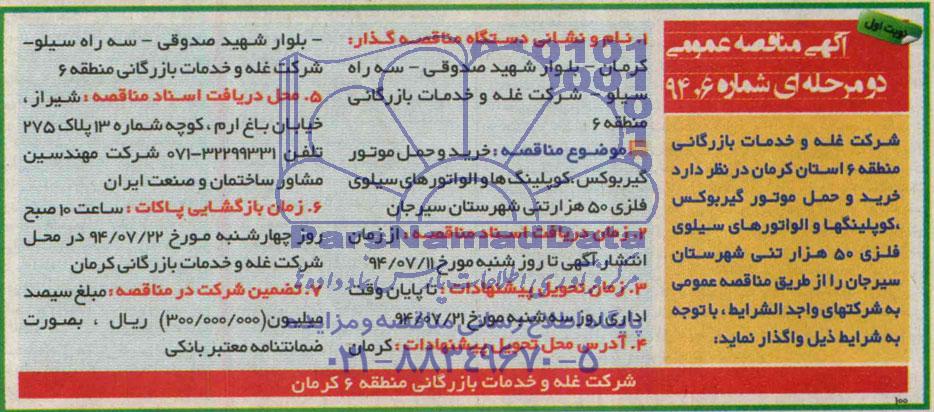 نوبت اول
آگهی مناقصه عمومی
دو مرحله ای شماره ۹۴.۶
شرکت غله و خدمات بازرگانی
منطقه ۶ استان کرمان در نظر دارد
خرید و حمل موتور گیربوکس
،کوپلینگها و الواتورهای سیلوی
فلزی ۵۰ هزار تنی شهرستان
سیرجان را از طریق مناقصه عمومی
به شرکتهای واجد الشرایط ، با توجه
به شرایط ذیل واگذار نماید:
۱. نام و نشانی دستگاه مناقصه گذار:
کرمان - بلوار شهید صدوقی - سه راه
سیلو - شرکت غله و خدمات بازرگانی
منطقه ۶
موضوع مناقصه : خرید و حمل موتور
گیربوکس،کوپلینگ ها و الواتورهای سیلوی
فلزی ۵۰ هزار تنی شهرستان سیرجان
۲. زمان دریافت اسناد مناقصه : از زمان
انتشار آگهی تا روز شنبه مورخ ۹۴/۰۷/۱۱
۳. زمان تحویل پیشنهادات : تا پایان وقت
اداری روز سه شنبه مورخ ۹۴/۰۷/۲۱
۴. آدرس محل تحویل پیشنهادات : کرمان
- بلوار شهید صدوقی - سه راه سیلو-
شرکت غله و خدمات بازرگانی منطقه ۶
۵. محل دریافت اسناد مناقصه : شیراز ،
خیابان باغ ارم ، کوچه شماره ۱۳ پلاک ۲۷۵
تلفن ۳۲۲۹۹۳۳۱-۰۷۱ شرکت مهندسین
مشاور ساختمان و صنعت ایران
۶. زمان بازگشایی پاکات : ساعت ۱۰ صبح
روز چهارشنبه مورخ ۹۴/۰۷/۲۲ در محل
شرکت غله و خدمات بازرگانی کرمان
۷. تضمین شرکت در مناقصه : مبلغ سیصد
میلیون(۳۰۰/۰۰۰/۰۰۰) ریال ، بصورت
ضمانتنامه معتبر بانکی
شرکت غله و خدمات بازرگانی منطقه ۶ کرمان
۱۰۰
ParsNamadData
پایگاه اطلاع رسانی مناقصه و مزایده
۰۲۱-۸۸۳۴۹۶۷۰-۵